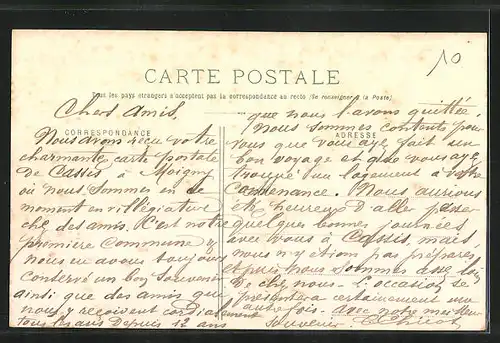 10
CARTE POSTALE
Tous les pays étrangers n'acceptent pas la correspondance au recto (Se renseigner à la Poste)
CORRESPONDANCE
Chers Amis,
Nous avons reçu votre
charmante carte postale
de Cassis, à Moigny
où nous sommes en ce
moment en villégiature
chez des amis. C'est notre
première commune
nous en avons toujours
conservé un bon souvenir
ainsi que des amis qui
nous y reçoivent cordialement
tous les ans depuis 12 ans
ADRESSE
que nous l'avons quittée.
Nous sommes contents pour
vous que vous ayez fait un
bon voyage et que vous ayez
trouvé un logement à votre
convenance. Nous aurions
été heureux d'aller passer
quelques bonnes journées
avec vous à Cassis, mais
nous n'y étions pas préparés
et puis nous sommes assez loin
de chez nous - l'occasion se
présentera certainement une
autre fois - avec notre meilleur
souvenir.